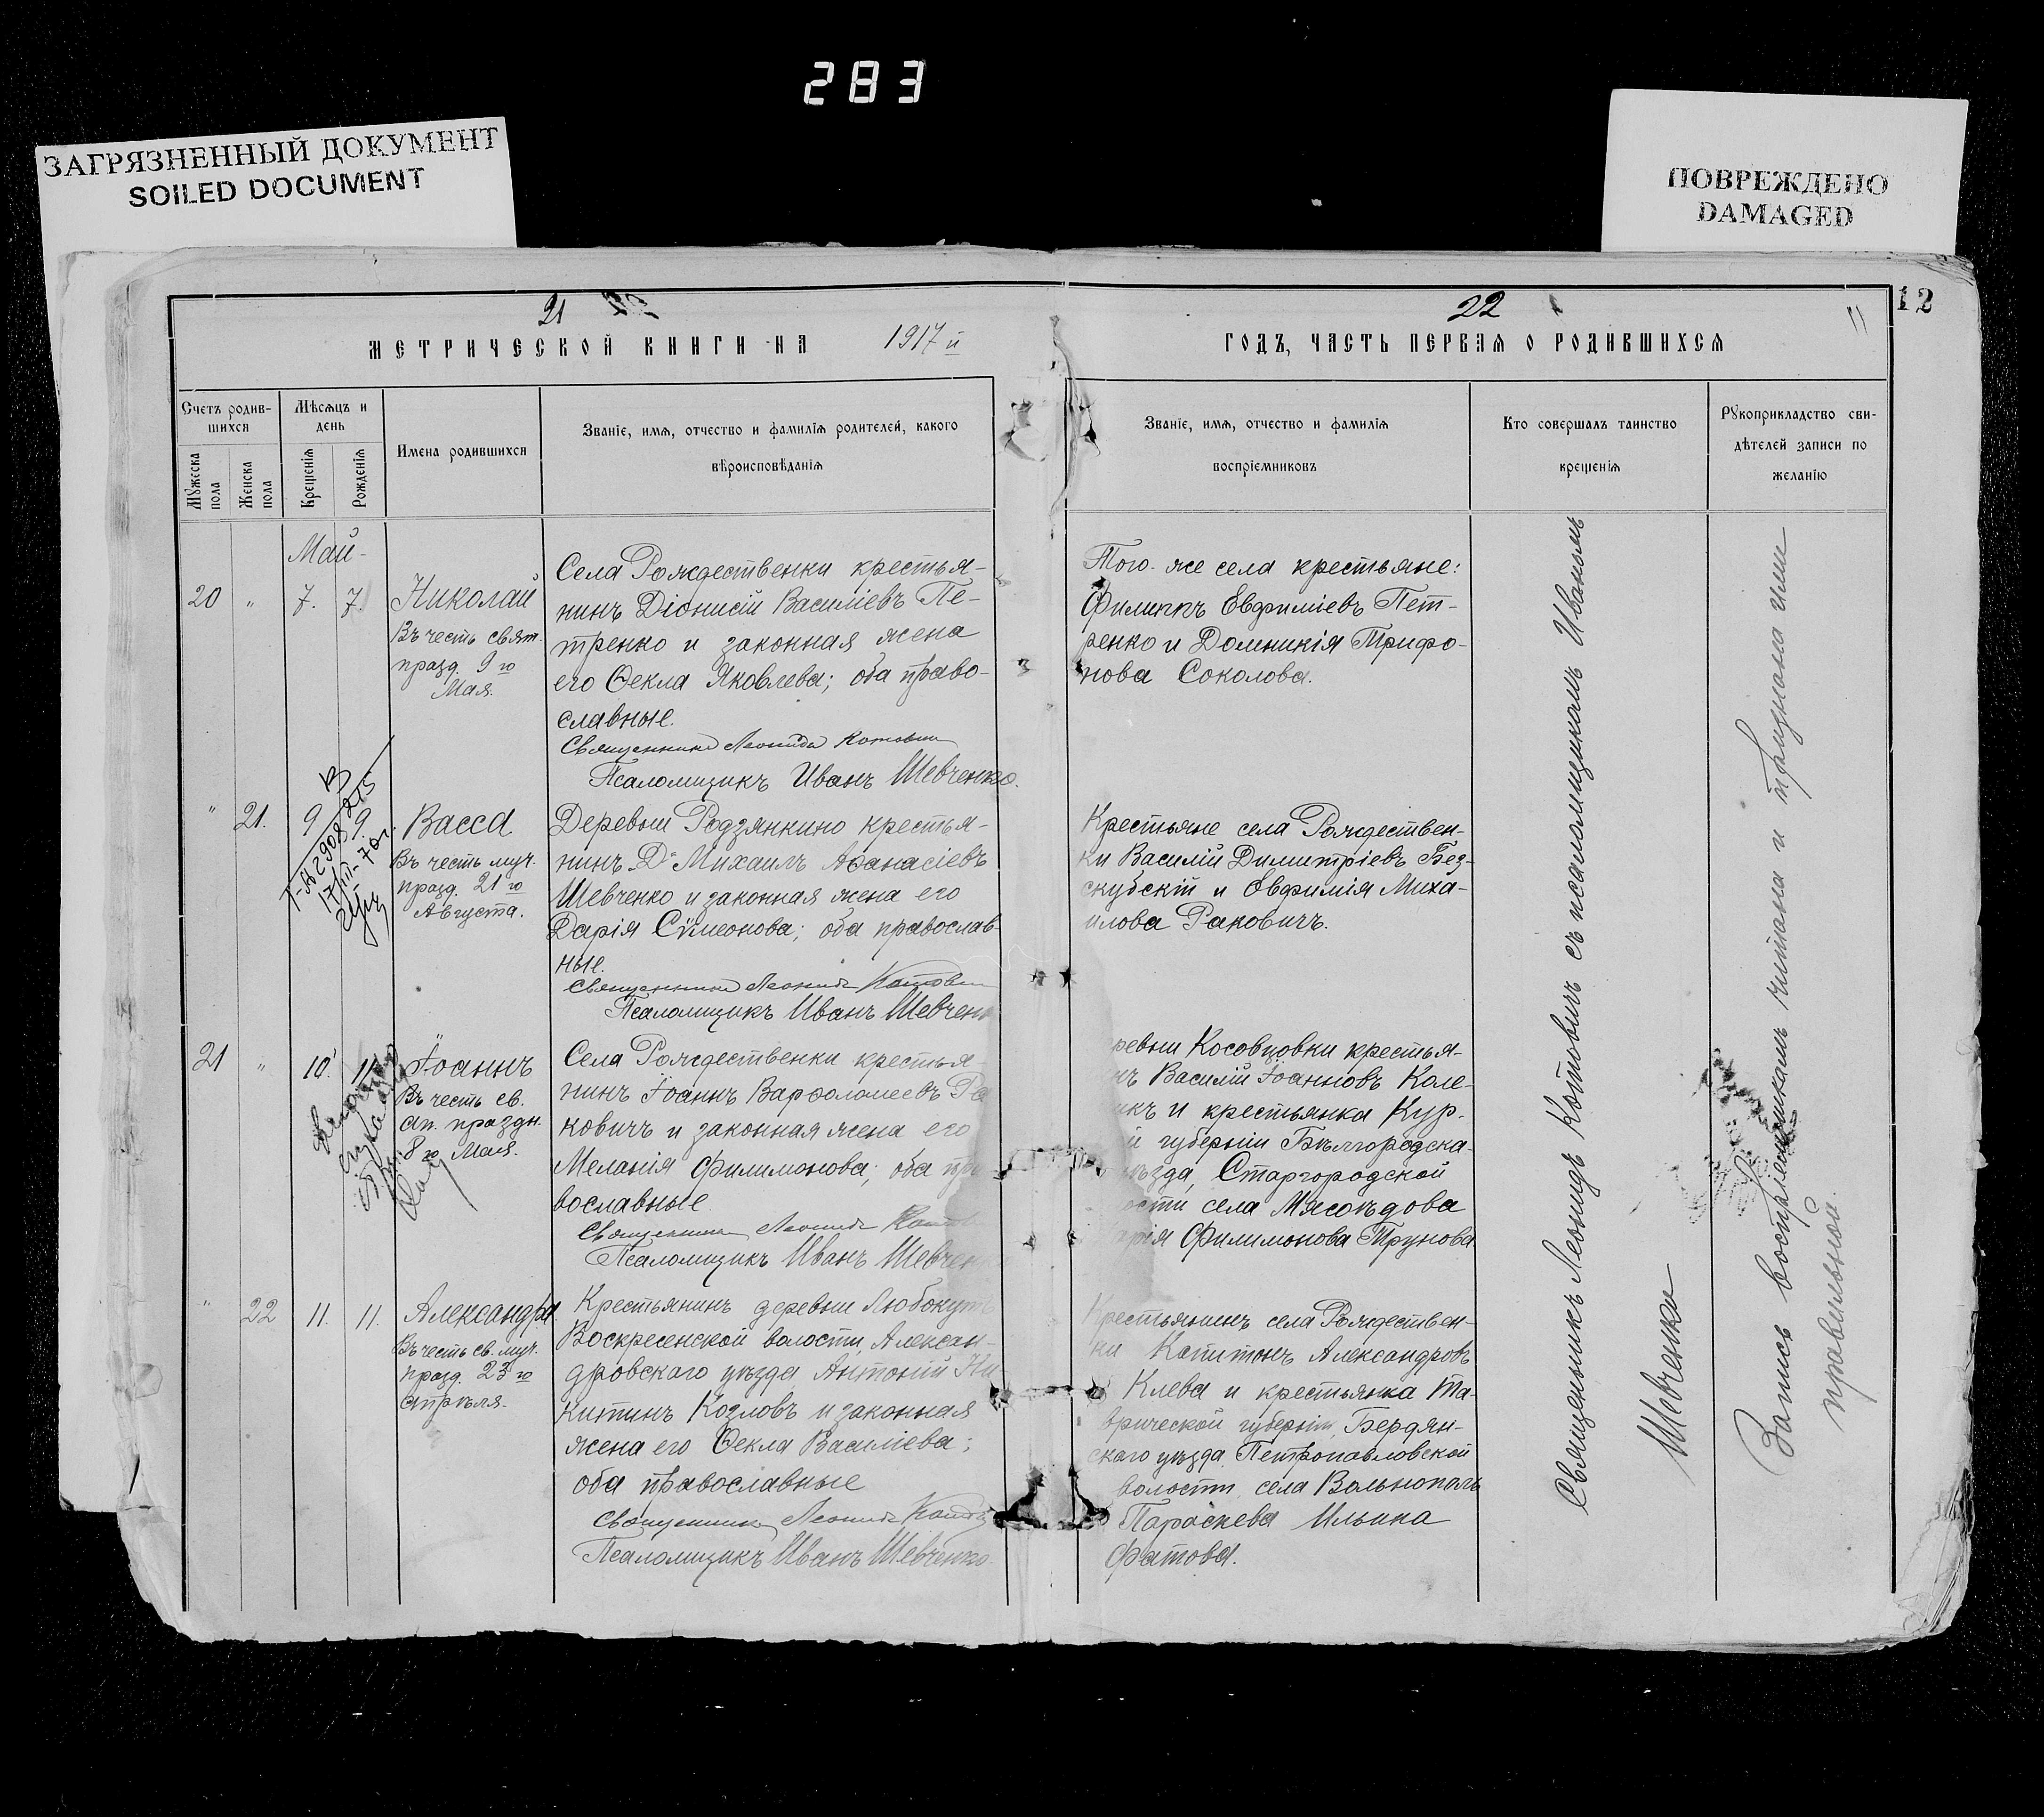 283
ЗАГРЯЗНЕННЫЙ ДОКУМЕНТ
SOILED DOCUMENT
ПОВРЕЖДЕНО
DAMAGED
21
МЕТРИЧЕСКОЙ КНИГИ НА 1917 й
22
ГОДЪ, ЧАСТЬ ПЕРВАЯ О РОДИВШИХСЯ
11
12
Счетъ родив-
шихся
Мужеска пола
Женска пола
Мѣсяцъ и
день
Крещенія
Рожденія
Имена родившихся
Званіе, имя, отчество и фамилія родителей, какого
вѣроисповѣданія
Званіе, имя, отчество и фамилія
воспріемниковъ
Кто совершалъ таинство
крещенія
Рукоприкладство сви-
дѣтелей записи по
желанію
Май
20 " 7. 7.
Николай
Въ честь свят.
празд. 9 го
Мая.
Села Рождественки крестья-
нинъ Діонисій Василіевъ Пе-
тренко и законная жена
его Ѳекла Яковлева; оба право-
славные.
Священникъ Леонидъ Котовичъ
Псаломщикъ Иванъ Шевченко.
Того-же села крестьяне:
Филиппъ Евфиміевъ Пет-
ренко и Домникія Трифо-
нова Соколова.
" 21. 9 9.
Васса
Въ честь муч.
празд. 21 го
Августа.
Деревни Родзянкино крестья-
нинъ Михаилъ Аѳанасіевъ
Шевченко и законная жена его
Дарія Сѵмеонова; оба православ-
ные.
Священникъ Леонидъ Котович
Псаломщикъ Иванъ Шевчен
Крестьяне села Рождествен-
ки Василій Димитріевъ Без-
скубскій и Евфимія Миха-
илова Раковичъ.
21 " 10. 11.
Іоаннъ
Въ честь св.
ап. праздн.
8 го Мая.
Села Рождественки крестья-
нинъ Іоаннъ Варѳоломеевъ Ра
ковичъ и законная жена его
Меланія Филимонова; оба пра-
вославные
Священникъ Леонидъ Котов
Псаломщикъ Иванъ Шевчен
ревни Косовцовки крестья-
нъ Василій Іоанновъ Коле-
икъ и крестьянка Кур-
й губерніи Бѣлгородска-
ѣзда, Старгородской
ости села Мясоѣдова
арія Филимонова Трунова
" 22 11. 11.
Александра
Въ честь св. муч.
празд. 23 го
апрѣля.
Крестьянинъ деревни Любокут
Воскресенской волости, Алексан-
дровскаго уѣзда Антоній Ни
китинъ Козловъ и законная
жена его Ѳекла Василіева;
оба православные
Священникъ Леонидъ Котов
Псаломщикъ Иванъ Шевченко.
Крестьянинъ села Рождествен-
ки Капитонъ Александровъ
Клева и крестьянка Та-
врической губерніи, Бердян-
скаго уѣзда Петропавловской
волости села Вольнополь
Параскева Ильина
Фатова.
Священникъ Леонидъ Котовичъ съ псаломщикомъ Иваномъ
Шевченко
Запись воспріемниками читана и признана ими
правильной.